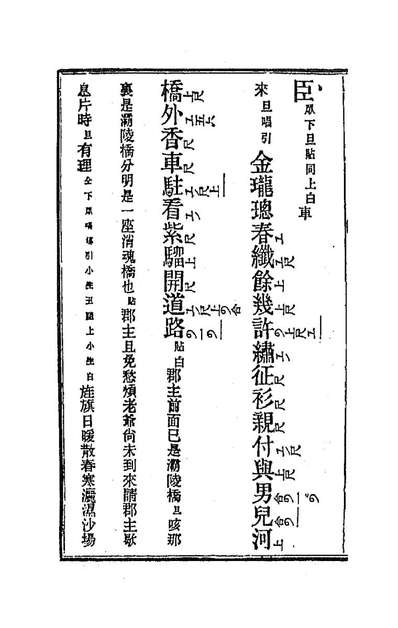 臣眾下旦貼同上白車
來旦唱引金瓏璁春纖餘幾許繡征衫親付與男兒河
橋外香車駐看紫騮開道路貼白郡主前面已是灞陵橋旦咳那
裏是灞陵橋分明是一座消魂橋也貼郡主且免愁煩老爺尚未到來請郡主歇
息片時旦有理仝下眾唱引小生丑隨上小生白旌旗日暖散春寒灑濕沙場